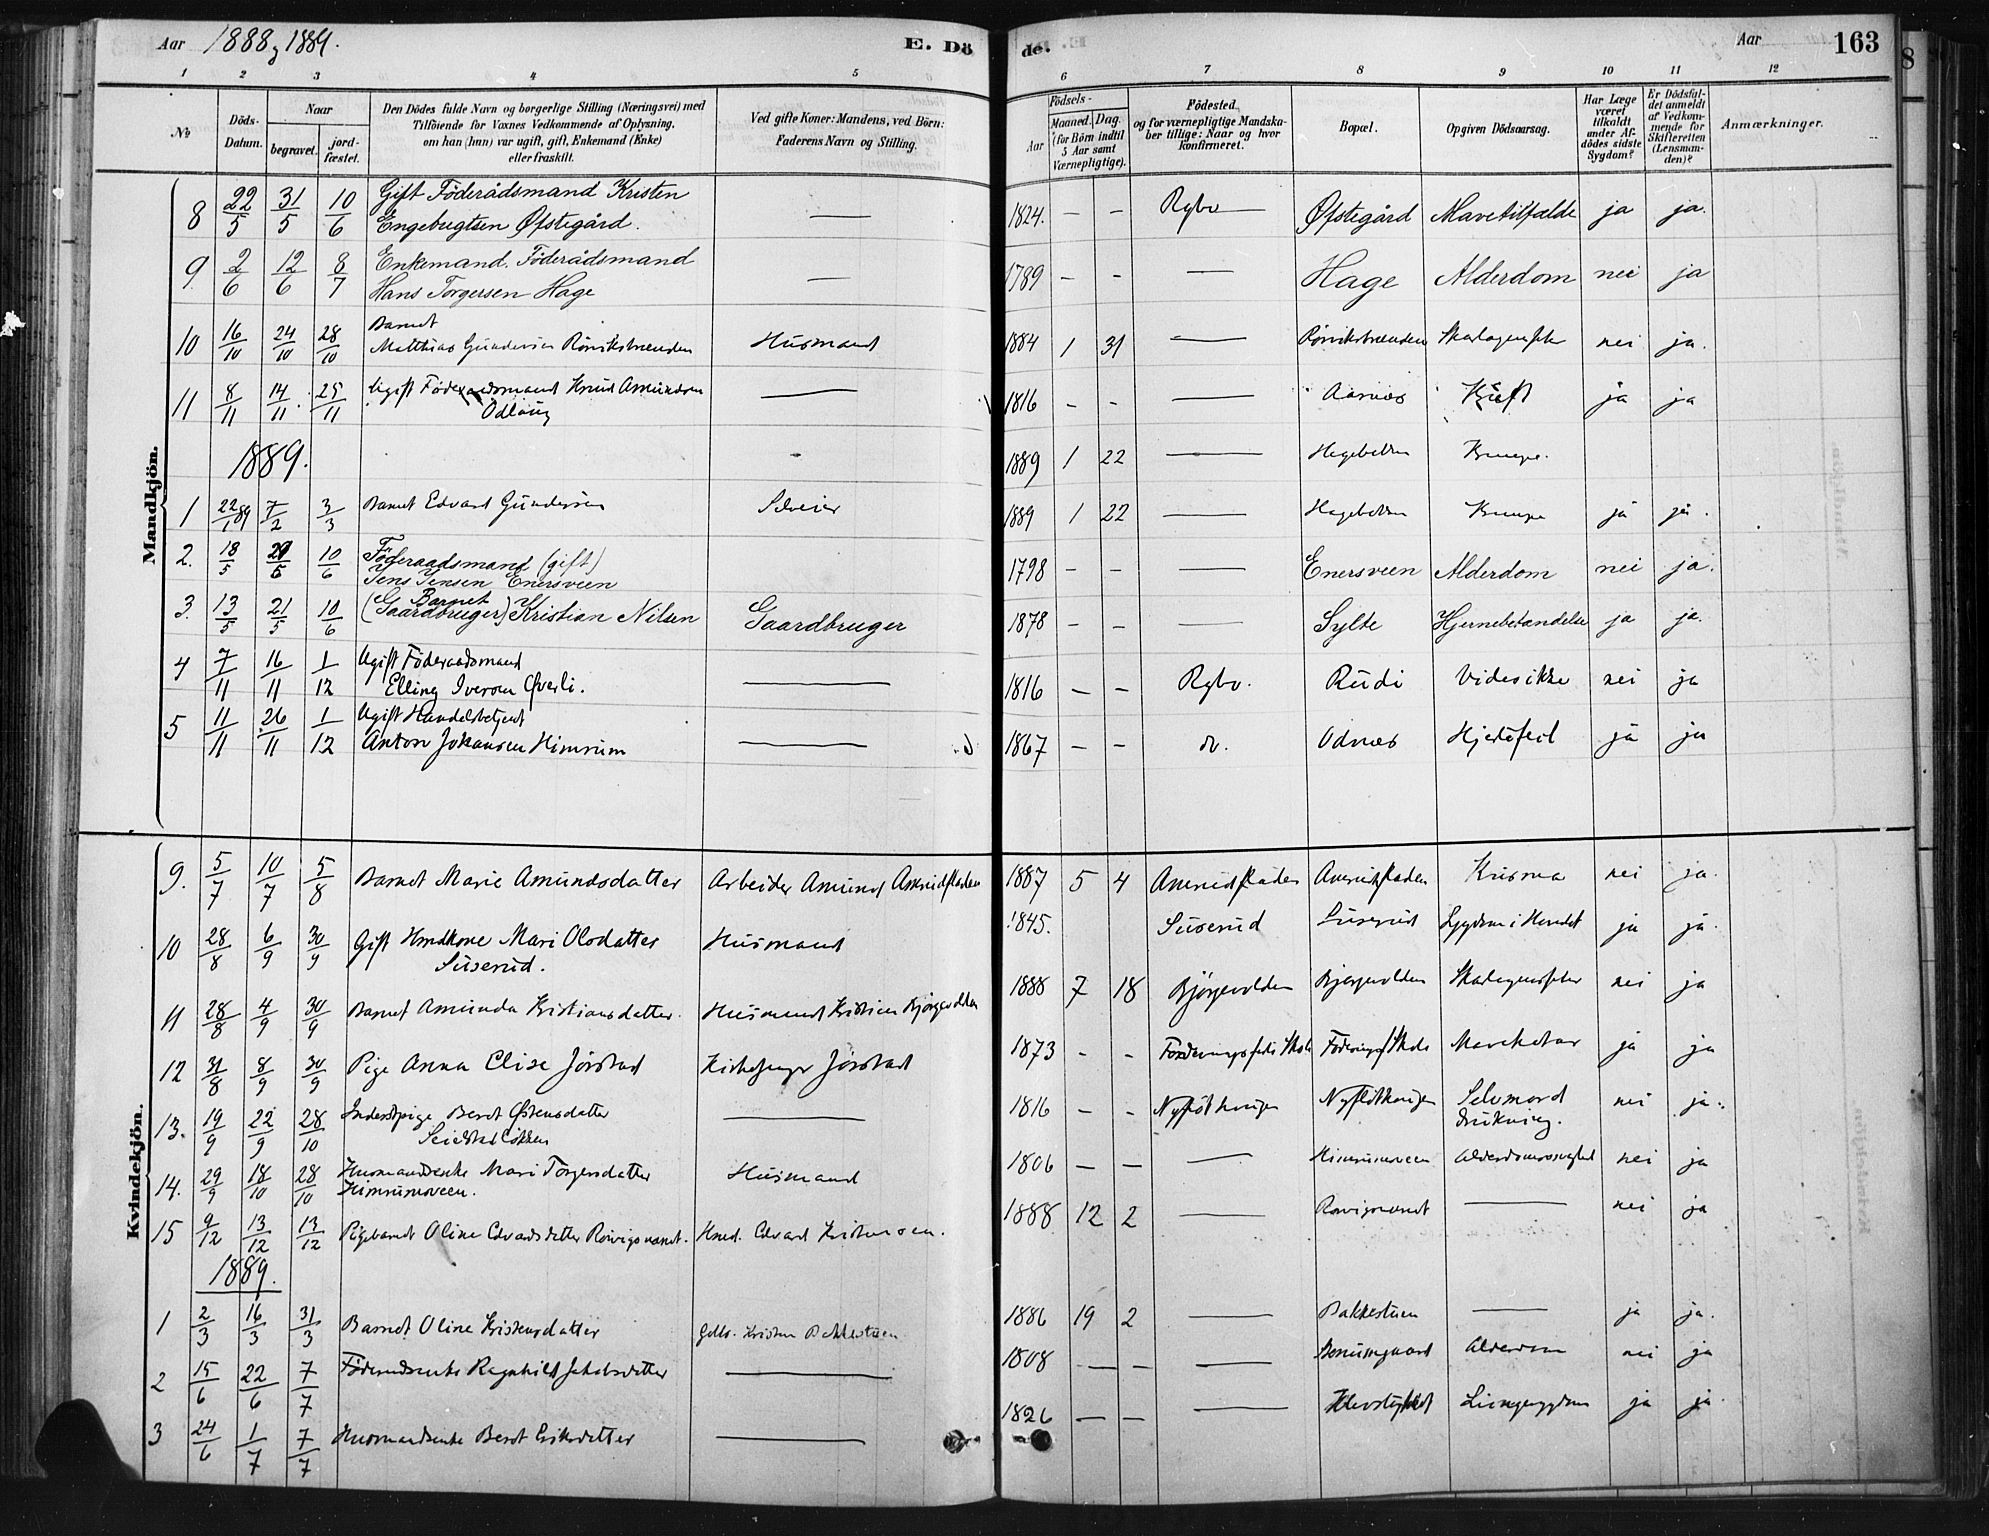 Aar 1888 og 1889.
E. Dö
de.
Aar
163
1 2 3 4 5 6 7 8 9 10 11 12
No
Döds-Datum.
Naar
begravet.
jord-fæstet.
Den Dödes fulde Navn og borgerlige Stilling (Næringsvei) med
Tilföiende for Voxnes Vedkommende af Oplysning,
om han (hun) var ugift, gift, Enkemand (Enke)
eller fraskilt.
Ved gifte Koner: Mandens, ved Börn:
Faderens Navn og Stilling.
Födsels-
Aar
Maaned. Dag.
(for Börn indtil
5 Aar samt
Værnepligtige).
Födested
og for værnepligtige Mandska-
ber tillige: Naar og hvor
konfirmeret.
Bopæl.
Opgiven Dödsaarsag.
Har Læge
været
tilkaldt
under Af-
dødes sidste
Sygdom?
Er Dödsfal-
det anmeldt
af Vedkom-
mende for
Skifteretten
(Lensman-
den)?
Anmærkninger.
Mandkjön.
8 22/5 31/5 10/6 Gift Föderådsmand Kristen — 1824. — — Rgbo — Øfstegård Mavetilfælde ja ja.
Engebrigtsen Øfstegård.
9 2/6 12/6 8/7 Enkemand. Föderådsmand — 1789 — — — Hage Alderdom nei ja
Hans Torgersen Hage
10 16/10 24/10 28/10 Barnet
Matthias Gundersen Rönikstrænden Husmand 1884 1 31 — Rönikstrænden Skarlagensfeber nei ja.
11 8/11 14/11 25/11 Ugift Föderaadsmand Knud Amundsen — 1816 - - — Aarnes Kræft ja ja
Odlaug
1889.
1889 1 22 — Hagebakken Krampe.
1 22/1 89 7/2 3/3 Barnet Edvard Gundersen Selveier 1889 1 22 — Hagebakken Krampe ja ja.
2. 18/5 10/6 Föderaadsmand (gift) 1798 — — — Enersveen Alderdom nei ja.
Jens Jensen Enersveen
3. 13/5 21/5 10/6 Barnet
(Gaardbruger) Kristian Nilsen Gaardbruger 1878 — — — Sylte Hjernebetændelse ja ja.
4 7/11 16/11 1/12 Ugift Föderaadsmand
Elling Iversen Øverli. — 1816 — — Rgbo. Rudi Vides ikke nei ja
5 11/11 26/11 1/12 Ugift Handelsbetjent
Anton Johansen Himrum — 1867 — — do. Odnæs Hjertefeil ja ja
Kvindekjön.
9. 5/7 10/7 5/8 Barnet Marie Amundsdatter Arbeider Amund 1887 5 4 nei ja.
10 28/8 6/9 30/9 Gift Hmdkone Mari Olsdatter Husmand 1845. Süserud Süserud Sygdom i Hovedet ja ja.
Süserud.
11 28/8 4/9 30/9 Barnet Amunda Kristiansdatter. Husmand Kristian Bjørgevolden 1888 7 18 Bjørgevolden Bjørgevolden Skarlagensfeber nei ja
12 31/8 8/9 30/9 Pige Anna Elise Jörstad Kirkesanger Jörstad 1873 - - Mavekatar ja ja
13. 19/9 22/9 28/10 Inderstpige Berdt Østensdatter — 1816 - - Selvmord nei ja.
Drukning.
14. 29/9 18/10 28/10 Husmandsenke Mari Torgersdatter Husmand 1806 — — — Himrumsveen Alderdomssvaghed nei ja
Himrumsveen.
15 9/12 13/12 13/12 Pigebarnet Oline Edvardsdatter Hmd. Edvard Kristensen. 1888 12 2 — — nei ja
1889.
1 2/3 16/3 31/3 Barnet Oline Kristensdatter Gdbr. Kristen Bakkestuen 1886 19 2 — Bakkestuen — ja ja.
2 15/6 22/6 7/7 Föderaadsenke Ragnhild Jakobsdatter — 1808 — — — Alderdom nei ja
3 24/6 1/7 7/7 Husmandsenke Berdt Eriksdatter — 1826 — — — Lungesygdom ja ja